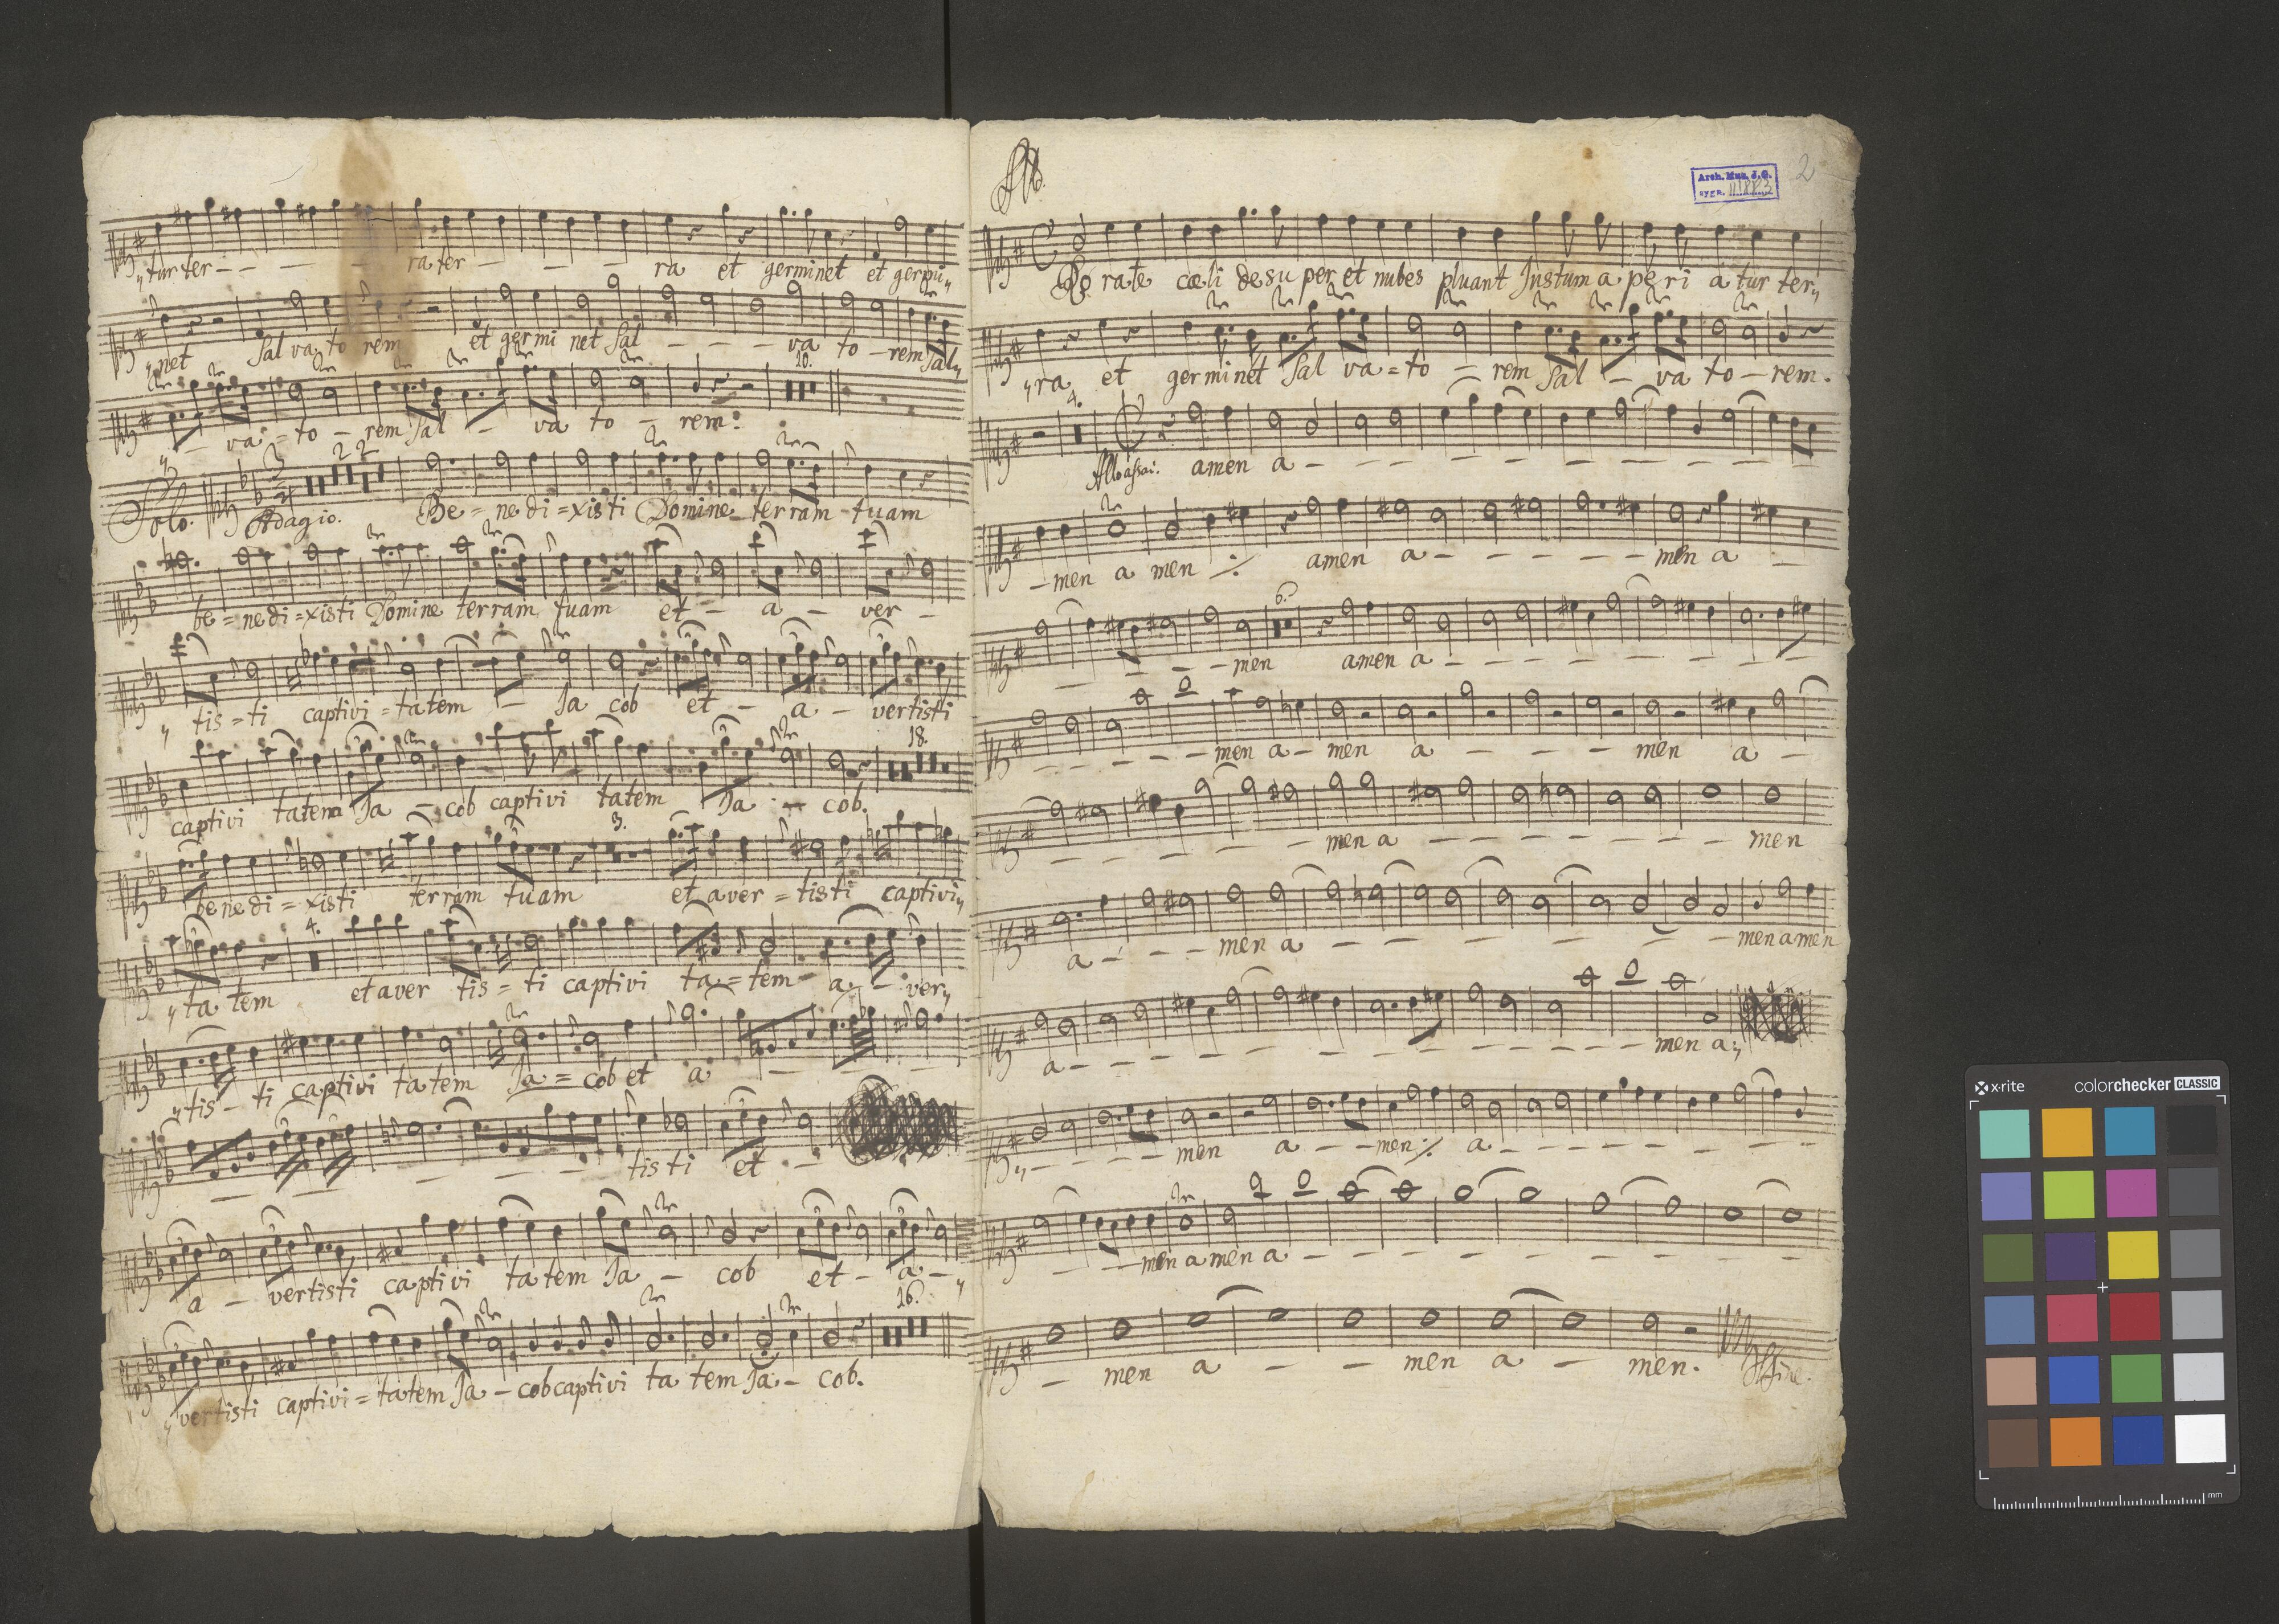 „tur ter - - - - - ra ter - - - - ra et germinet et germi„
„net Salvato rem et germi net Sal - - - - va to - rem Sal„
10.
„ - va = to - rem Sal - va to - rem.
2 2
Solo. Adagio. 3/4 Be = ne di = xisti Domine terram tuam
be = ne di = xisti Domine terram tuam et - a - ver -
„ tis = ti captivi = tatem - Ja cob et - a - vertisti
18.
captivi tatem Ja - cob captivi tatem Ja - cob.
3.
benedi = xisti terram tuam et aver = tisti captivi„
4.
„ta tem et aver tis = ti captivi ta = tem a - ver„
„tis - ti captivi tatem Ja = cob et a - -
- - - - - tis ti et -
a - vertisti captivi tatem Ja - cob et - a - „
16.
„vertisti captivi = tatem Ja - cob captivi ta tem Ja - cob.
Arch. Muz. J. G.
sygn.
2
All.
C Rorate cæli desuper et nubes pluant Justum aperi atur ter„
„ra et germinet Sal va = to - rem Sal - va to - rem.
4.
All: assai. amen a - - - - - - - -
- men a men ·/· amen a - - - - - - men a -
6.
- - - - men amen a - - - - - - - -
- - - - - - men a - men a - - - men a -
- - - - - - men a - - - - - - men
a - - - men a - - - - - - men amen
a - - - - - - - - - - - - - men a„
„ - - - - men a - - men ·/· a - - - - - - -
- - - men amen a - - - - - - - -
- men a - - men a - men. Fine.
x-rite colorchecker CLASSIC
mm